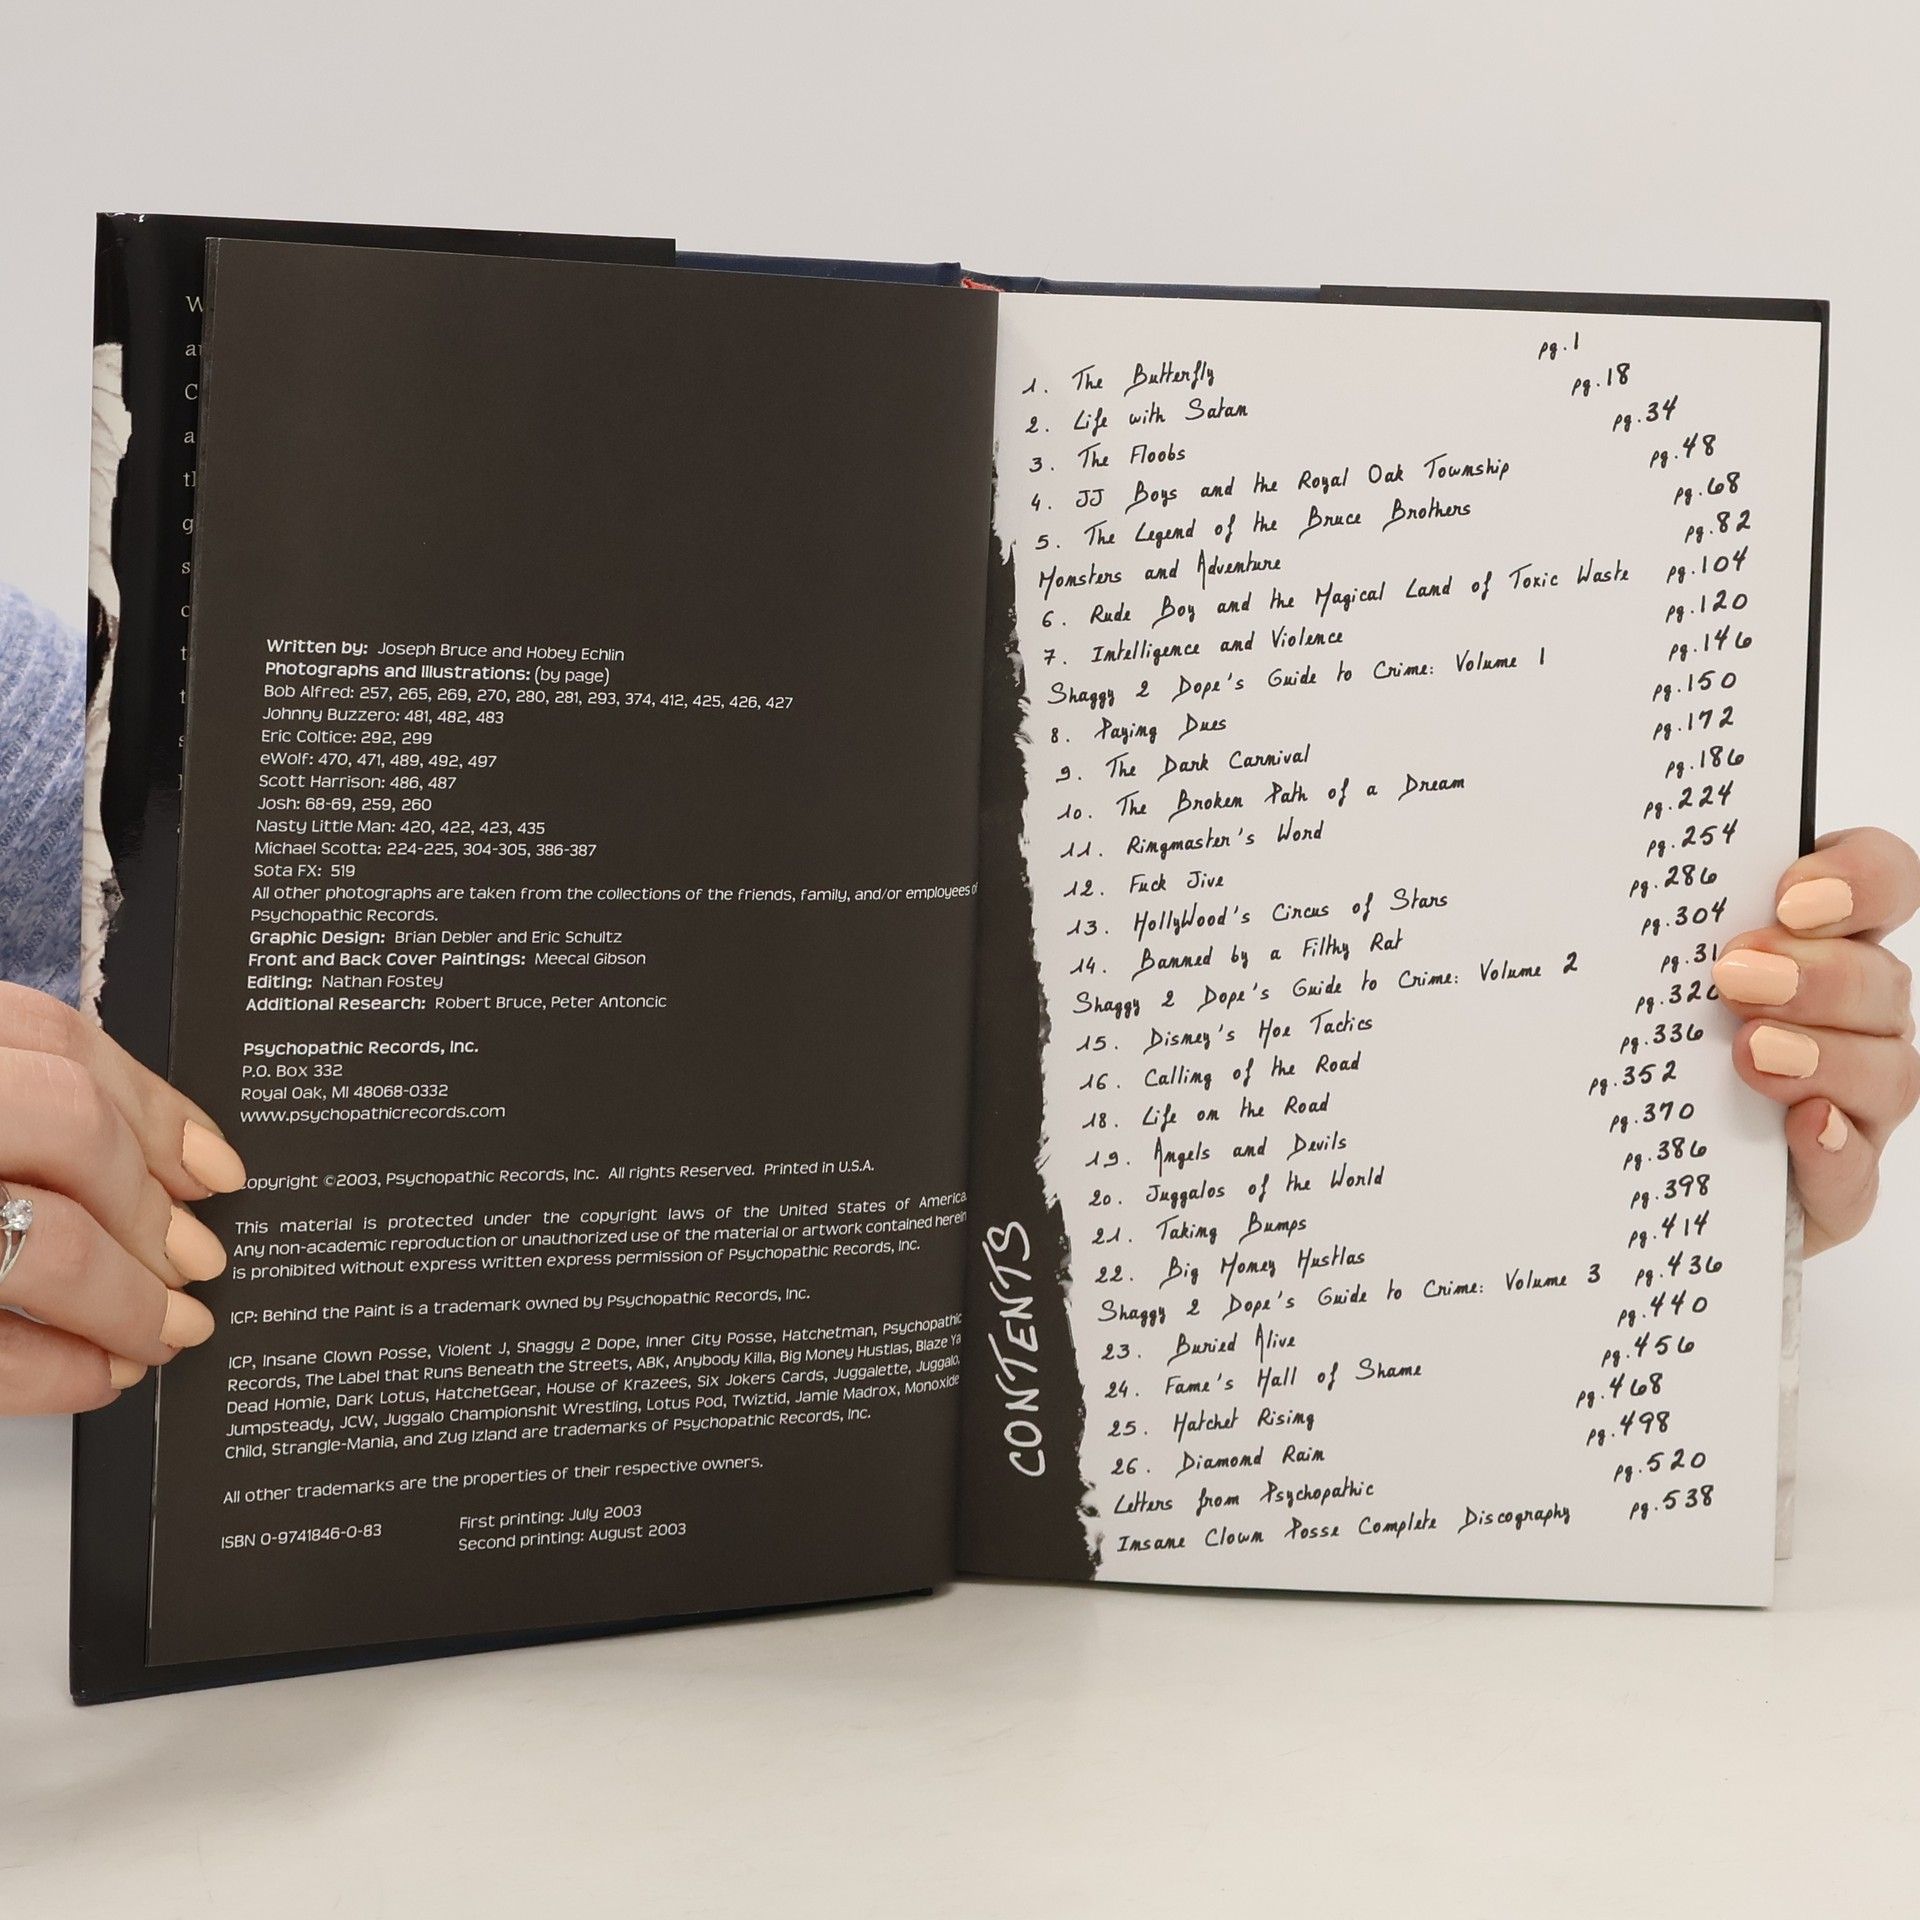 Written by: Joseph Bruce and Hobey Echlin
Photographs and Illustrations: (by page)
Bob Alfred: 257, 265, 269, 270, 280, 281, 293, 374, 412, 425, 426, 427
Johnny Buzzero: 481, 482, 483
Eric Coltice: 292, 299
eWolf: 470, 471, 489, 492, 497
Scott Harrison: 486, 487
Josh: 68-69, 259, 260
Nasty Little Man: 420, 422, 423, 435
Michael Scotta: 224-225, 304-305, 386-387
Sota FX: 519
All other photographs are taken from the collections of the friends, family, and/or employees of
Psychopathic Records.
Graphic Design: Brian Debler and Eric Schultz
Front and Back Cover Paintings: Meecal Gibson
Editing: Nathan Fostey
Additional Research: Robert Bruce, Peter Antoncic
Psychopathic Records, Inc.
P.O. Box 332
Royal Oak, MI 48068-0332
www.psychopathicrecords.com
opyright ©2003, Psychopathic Records, Inc. All rights Reserved. Printed in U.S.A.
This material is protected under the copyright laws of the United States of America.
Any non-academic reproduction or unauthorized use of the material or artwork contained herein
is prohibited without express written express permission of Psychopathic Records, Inc.
ICP: Behind the Paint is a trademark owned by Psychopathic Records, Inc.
ICP, Insane Clown Posse, Violent J, Shaggy 2 Dope, Inner City Posse, Hatchetman, Psychopathic
Records, The Label that Runs Beneath the Streets, ABK, Anybody Killa, Big Money Hustlas, Blaze Ya
Dead Homie, Dark Lotus, HatchetGear, House of Krazees, Six Jokers Cards, Juggalette, Juggalo,
Jumpsteady, JCW, Juggalo Championshit Wrestling, Lotus Pod, Twiztid, Jamie Madrox, Monoxide
Child, Strangle-Mania, and Zug Izland are trademarks of Psychopathic Records, Inc.
All other trademarks are the properties of their respective owners.
ISBN 0-9741846-0-83
First printing: July 2003
Second printing: August 2003
CONTENTS
1. The Butterfly pg.1
2. Life with Satan pg.18
3. The Floobs pg.34
4. JJ Boys and the Royal Oak Township pg.48
5. The Legend of the Bruce Brothers pg.68
Monsters and Adventure pg.82
6. Rude Boy and the Magical Land of Toxic Waste pg.104
7. Intelligence and Violence pg.120
Shaggy 2 Dope's Guide to Crime: Volume 1 pg.146
8. Paying Dues pg.150
9. The Dark Carnival pg.172
10. The Broken Path of a Dream pg.186
11. Ringmaster's Word pg.224
12. Fuck Jive pg.254
13. HollyWood's Circus of Stars pg.286
14. Banned by a Filthy Rat pg.304
Shaggy 2 Dope's Guide to Crime: Volume 2 pg.31
15. Disney's Hoe Tactics pg.320
16. Calling of the Road pg.336
18. Life on the Road pg.352
19. Angels and Devils pg.370
20. Juggalos of the World pg.386
21. Taking Bumps pg.398
22. Big Money Hustlas pg.414
Shaggy 2 Dope's Guide to Crime: Volume 3 pg.436
23. Buried Alive pg.440
24. Fame's Hall of Shame pg.456
25. Hatchet Rising pg.468
26. Diamond Rain pg.498
Letters from Psychopathic pg.520
Insane Clown Posse Complete Discography pg.538